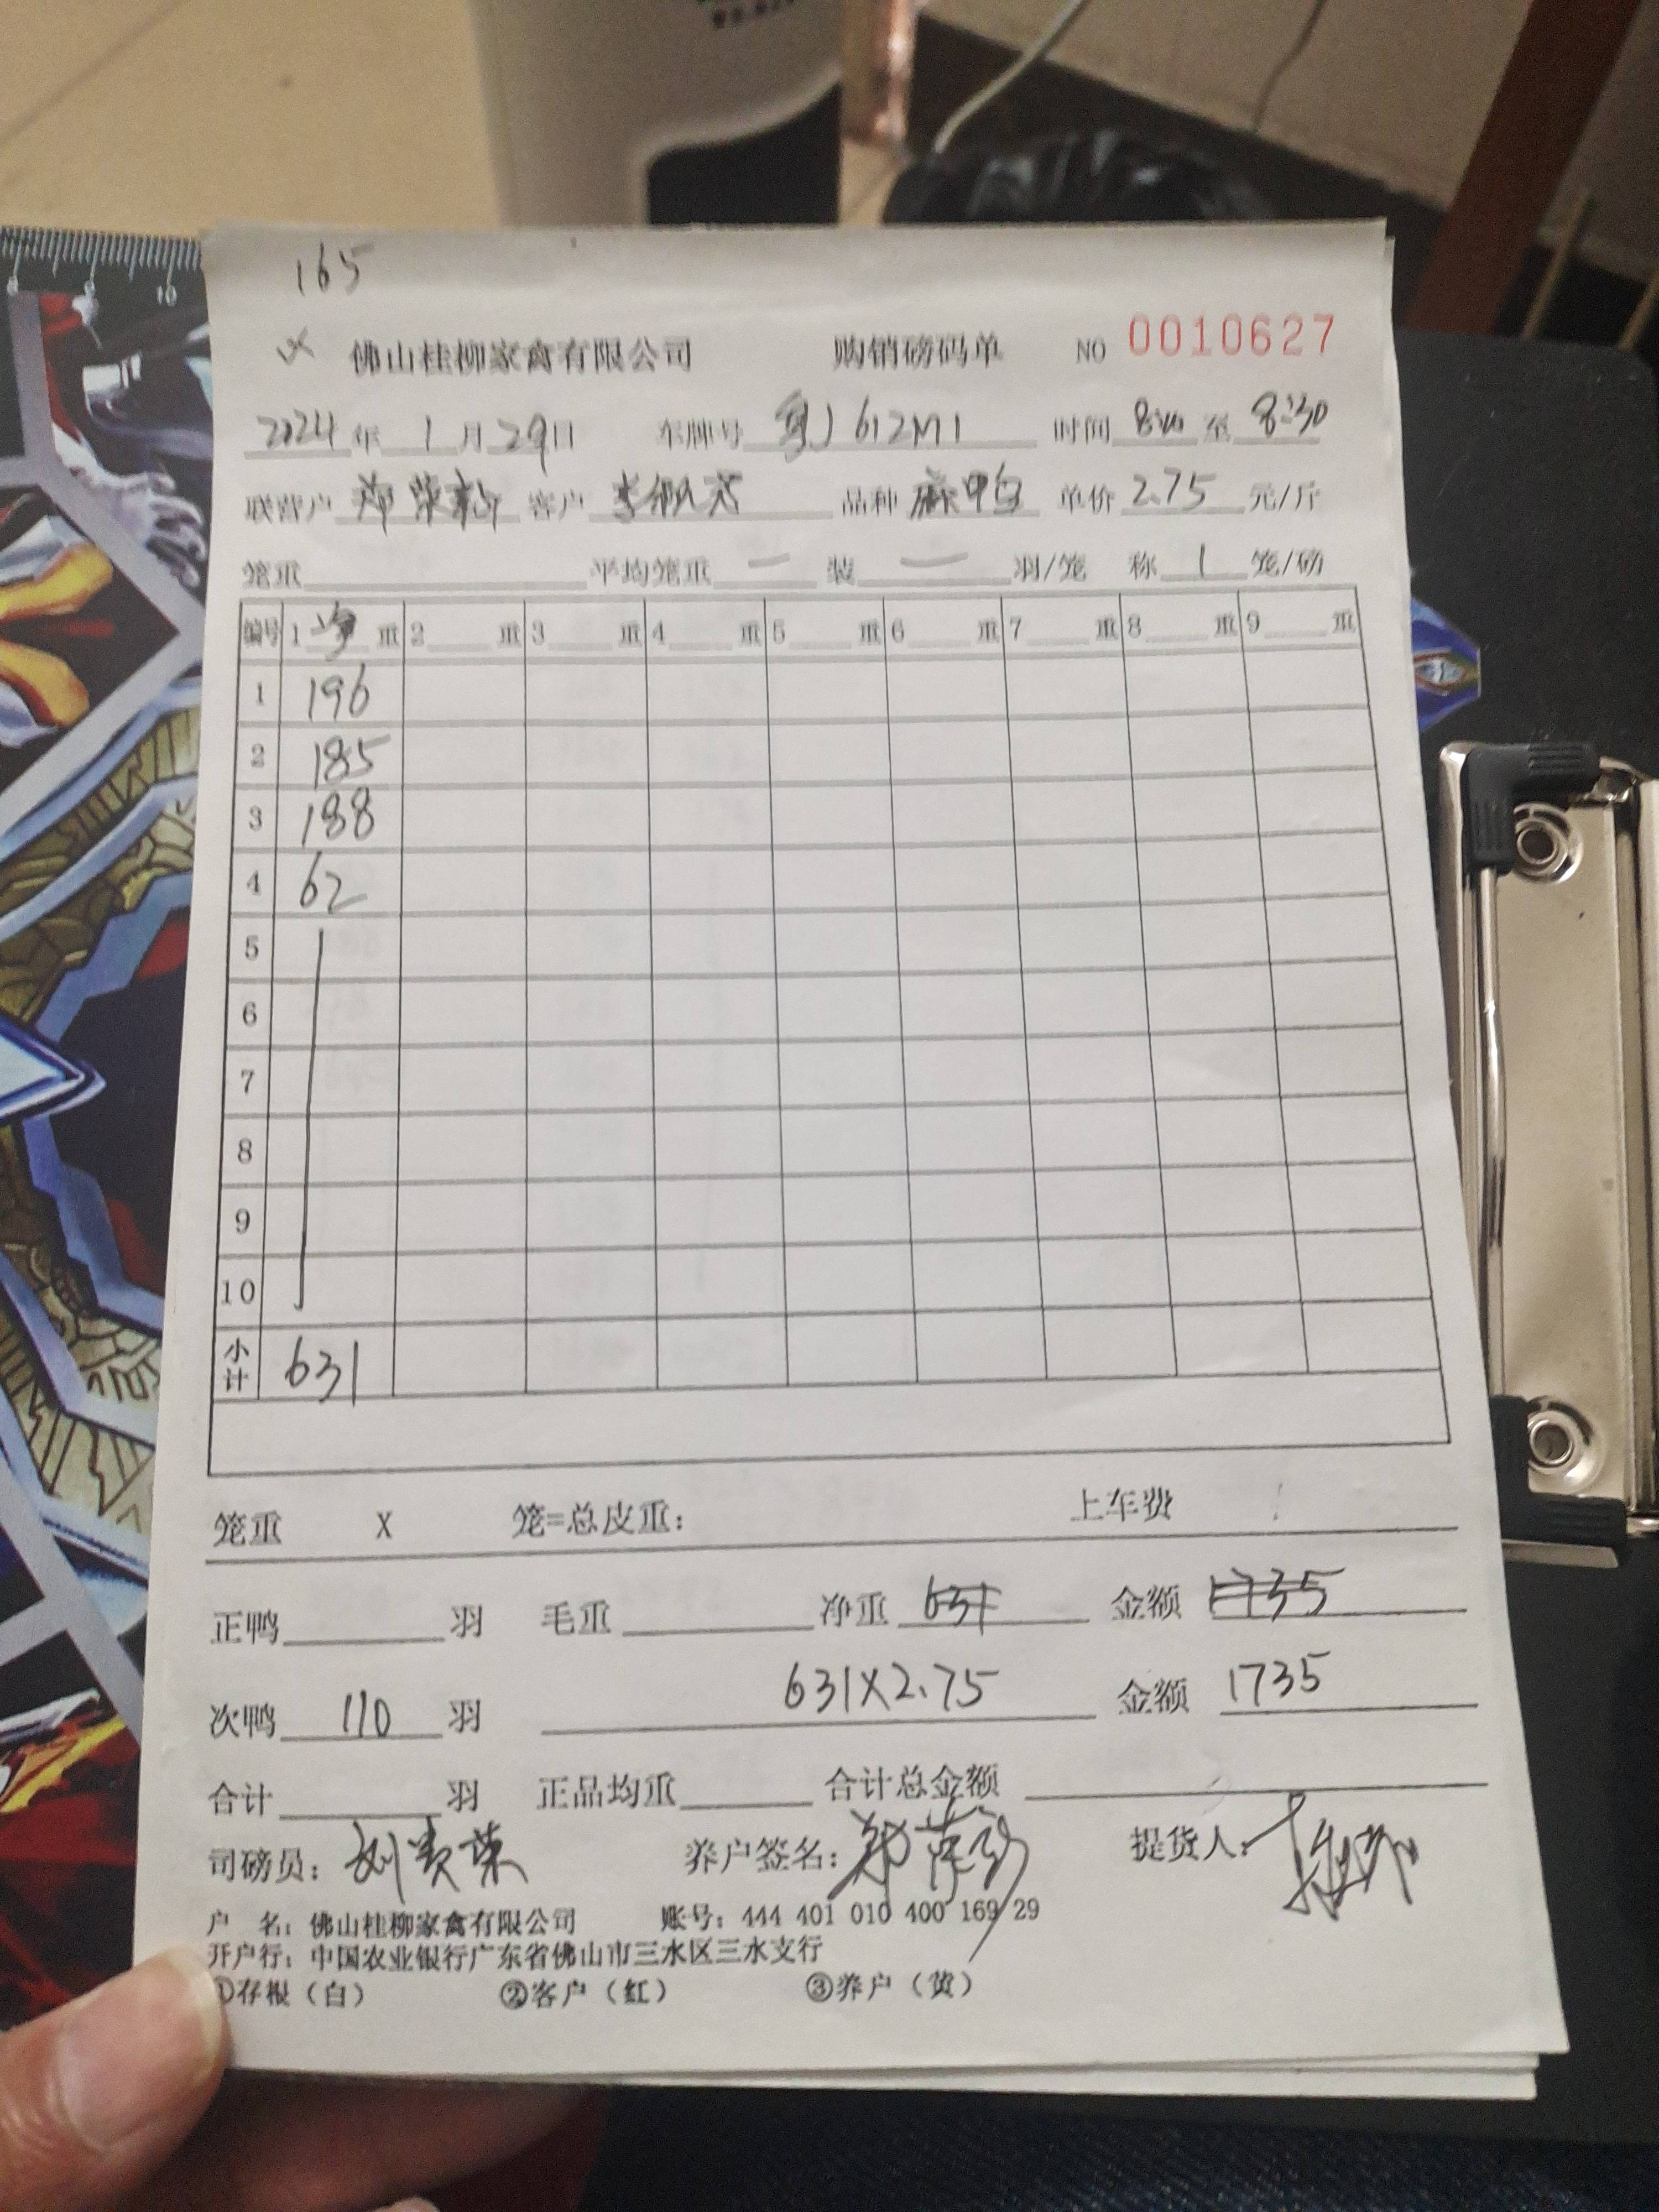 165
佛山桂柳家禽有限公司 购销磅码单 NO 0010627
2024年 1月29日 车牌号 粤J 612M1 时间 至 8:30
联营户 郑荣彩 客户 品种 麻中白 单价 2.75 元/斤
笼重 平均笼重 一 装 一 羽/笼 称 1 笼/磅
编号 1 净 重 2 重 3 重 4 重 5 重 6 重 7 重 8 重 9 重
1 196
2 185
3 188
4 62
5
6
7
8
9
10
小计 631
笼重 X 笼=总皮重: 上车费
正鸭 羽 毛重 净重 631 金额 1735
次鸭 110 羽 631X2.75 金额 1735
合计 羽 正品均重 合计总金额
司磅员: 刘贵荣 养户签名: 提货人:
户 名: 佛山桂柳家禽有限公司 账号: 444 401 010 400 169 29
开户行: 中国农业银行广东省佛山市三水区三水支行
①存根(白) ②客户(红) ③养户(黄)